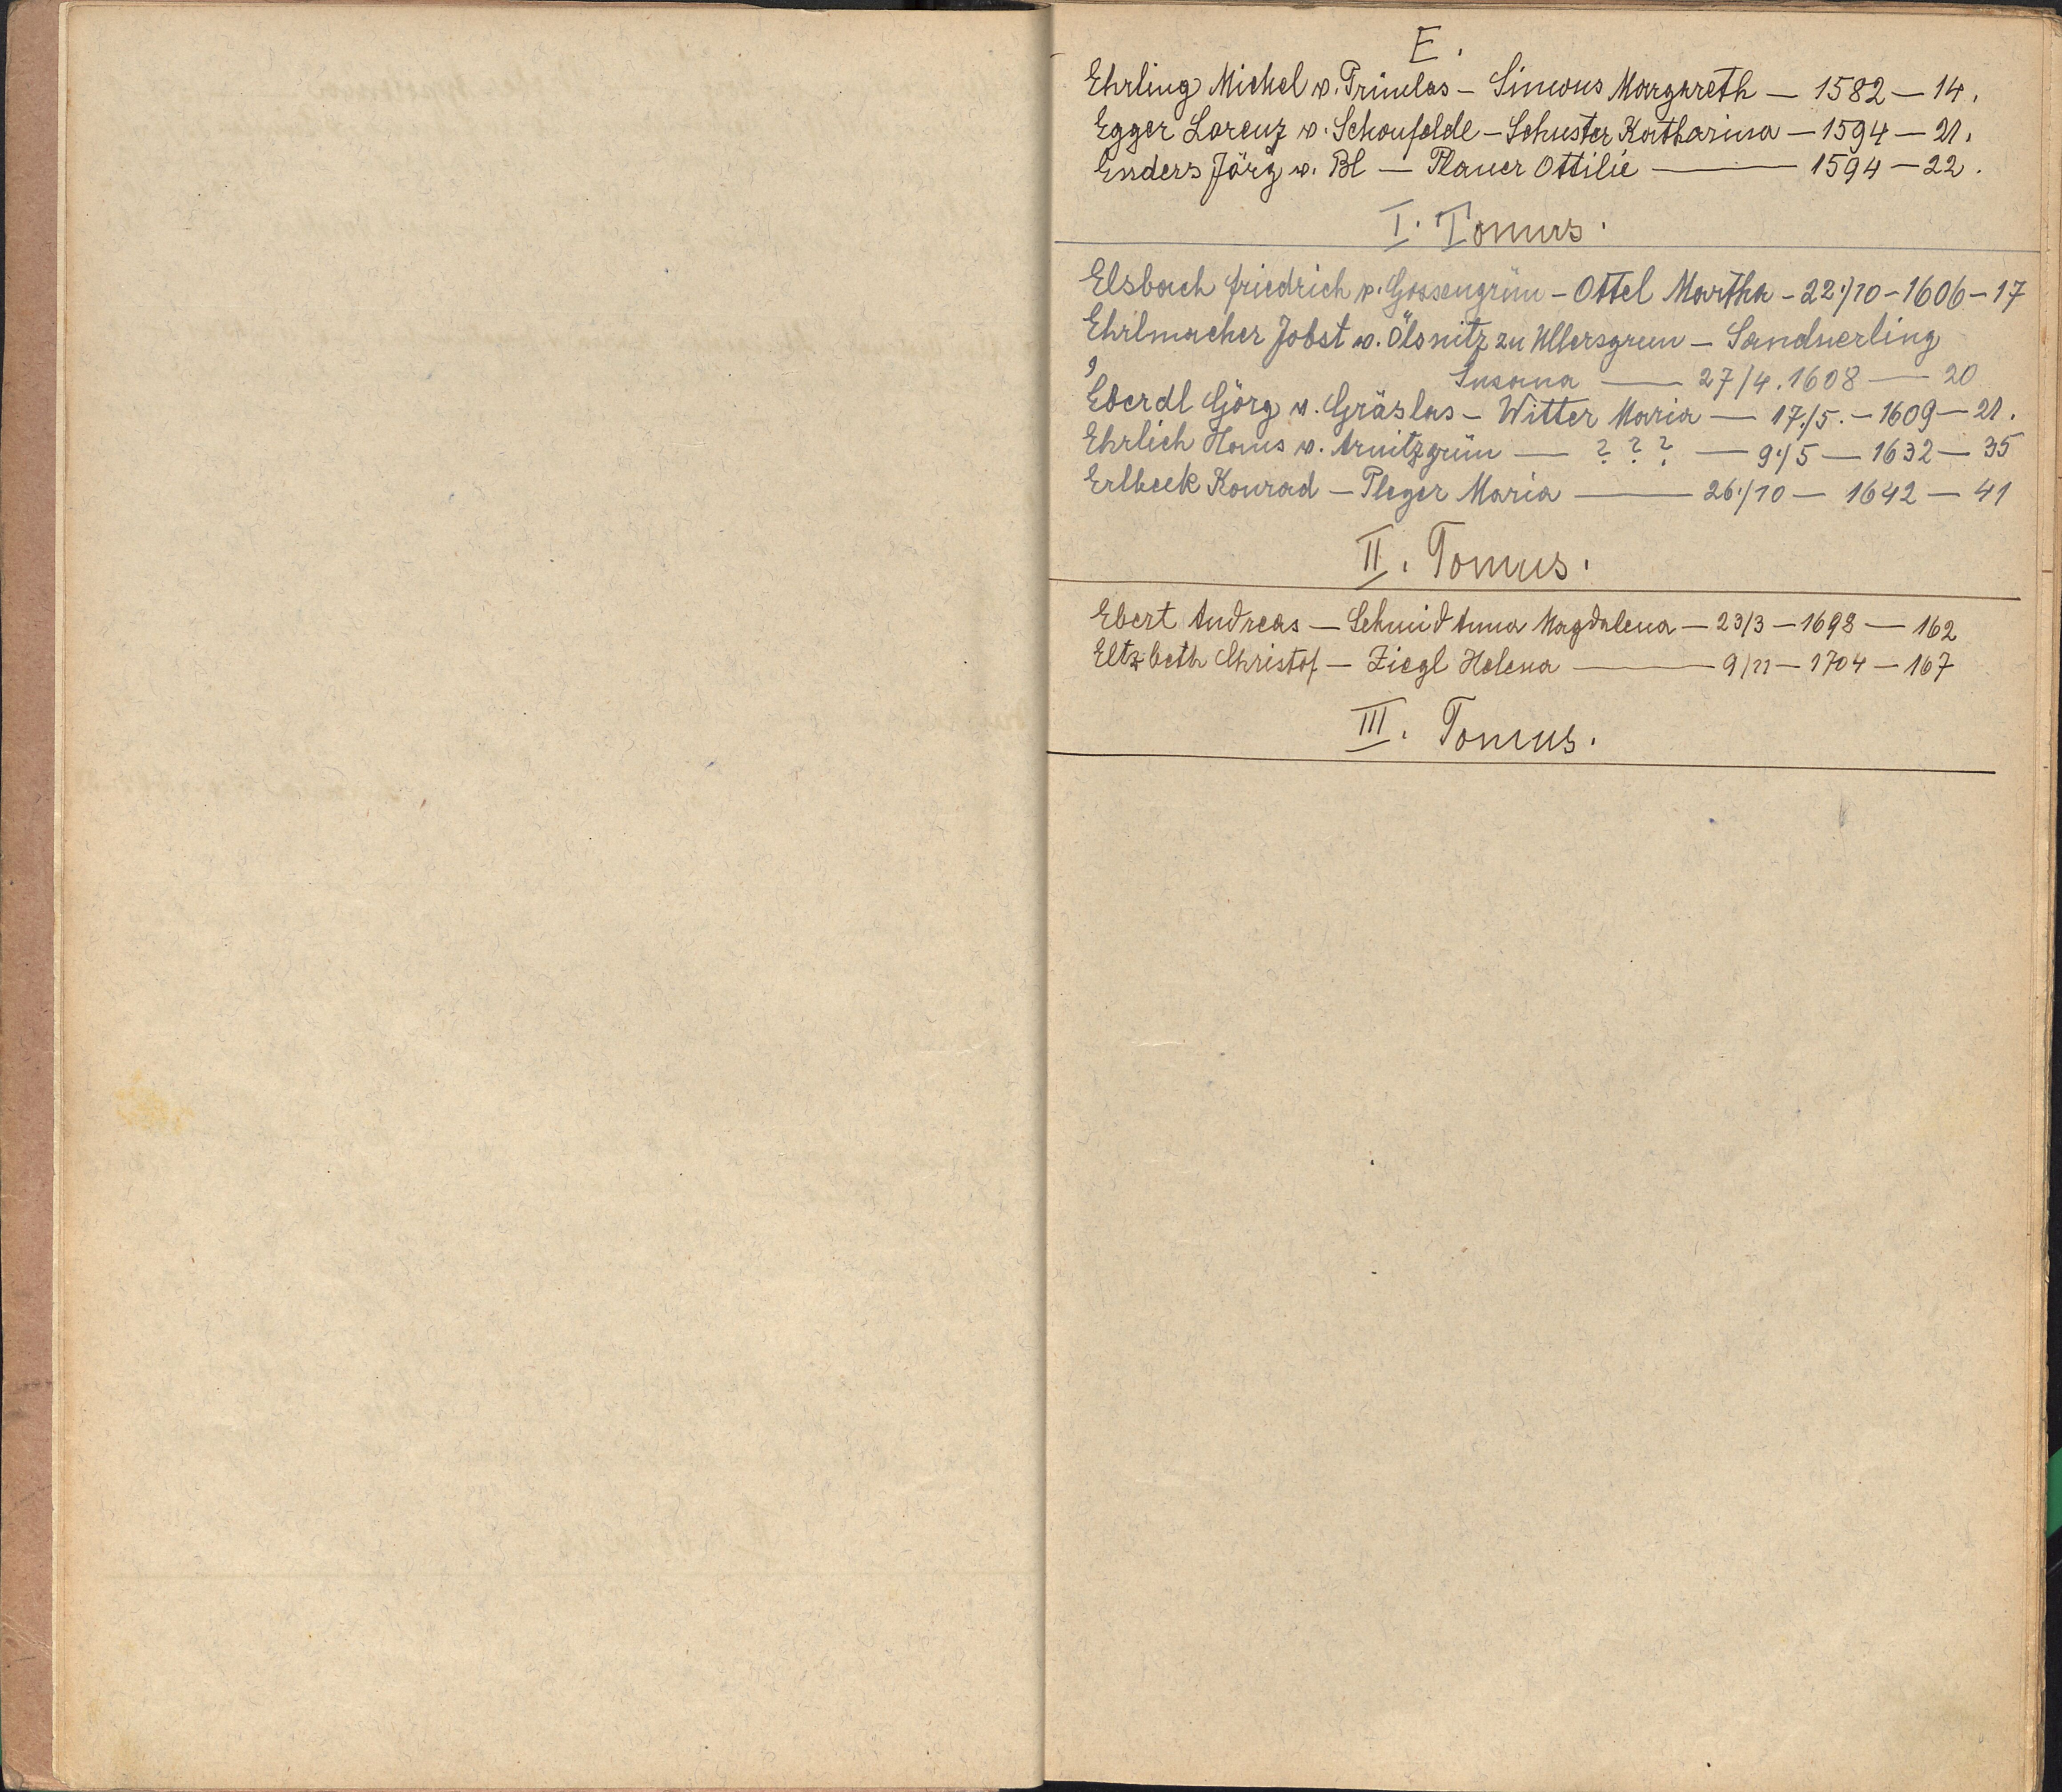 E.
Ehrling Michel v. Trümlas – Simons Margareth — 1582 — 14.
Egger Lorenz v. Schönfeldl – Schuster Katharina — 1594 — 21.
Enders Jörg v. Bl — Plauer Ottilie — 1594 — 22.
I. Tomus.
Elsbach Friedrich v. Gossengrün – Ottel Martha – 22./10 – 1606 – 17
Ehrlmacher Jobst v. Ölsnitz zu Ullersgrun – Sandnerling
Susana — 27/4. 1608 — 20
Eberdl Görg v. Gräslas – Witter Maria — 17./5. – 1609 – 21.
Ehrlich Hans v. Arnitzgrün — ? ? ? — 9./5 — 1632 — 35
Erlbeck Konrad – Pleger Maria — 26./10 — 1642 — 41
II. Tomus.
Ebert Andreas — Schmid Anna Magdalena — 23/3 – 1698 — 162
Eltzbeth Christof — Ziegl Helena — 9/11 — 1704 — 167
III. Tomus.